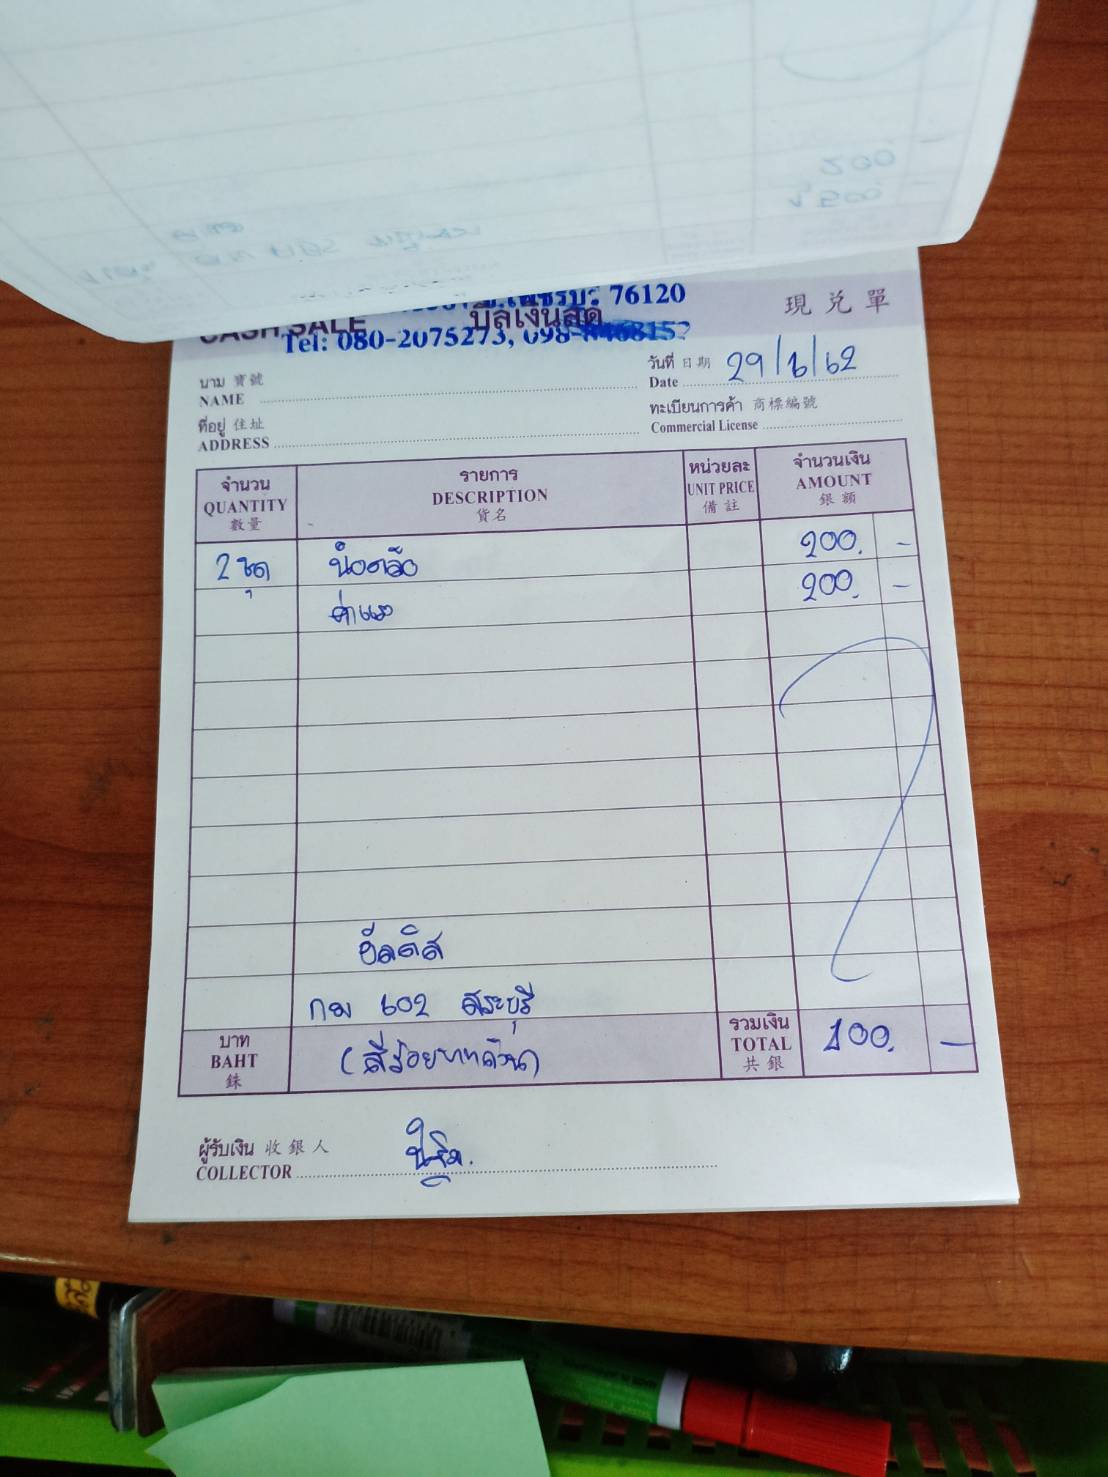 200
1,500
76120
CASH SALE บิลเงินสด 現兌單
Tel: 080-2075273, 098-8468152
นาม 寶號
NAME
วันที่ 日期
Date 29/6/62
ที่อยู่ 住址
ADDRESS
ทะเบียนการค้า 商標編號
Commercial License
จำนวน
QUANTITY
數量
รายการ
DESCRIPTION
貨名
หน่วยละ
UNIT PRICE
備註
จำนวนเงิน
AMOUNT
銀額
2 ชุด 200. -
ค่าแรง 200. -
อัลติส
กม 602 สระบุรี
บาท
BAHT
銖
(สี่ร้อยบาทถ้วน)
รวมเงิน
TOTAL
共銀
400. -
ผู้รับเงิน 收銀人
COLLECTOR